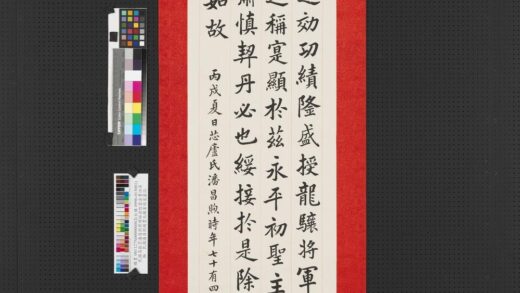 之効功績隆盛授龍驤將軍
之稱寔顯於茲永平初聖主
肅慎契丹必也綏接於是除
如故
丙戌夏日芯廬氏潘昌煦時年七十有四